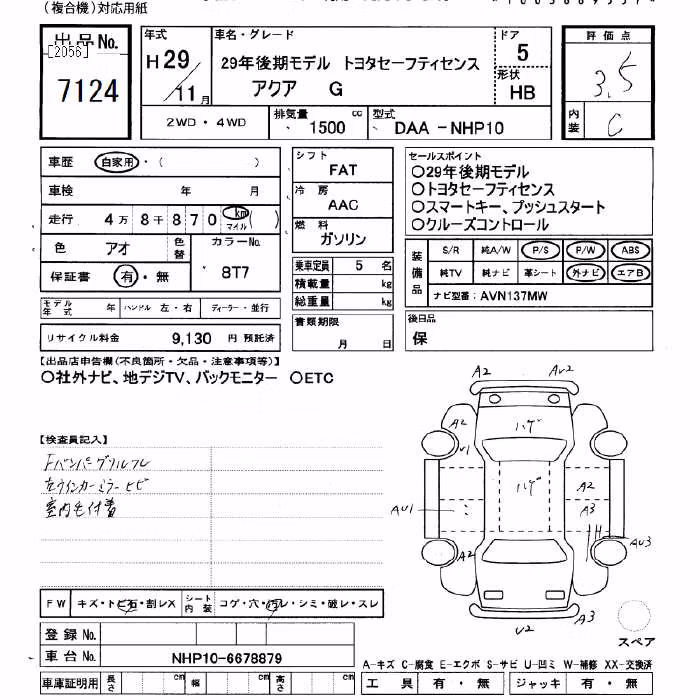 (複合機)対応用紙
出品No. [2056] 7124
年式 H29/11月
車名・グレード 29年後期モデル トヨタセーフティセンス
アクア G
ドア 5
形状 HB
評価点 3.5
内装 C
2WD・4WD
排気量 1500 cc
型式 DAA-NHP10
車歴 自家用・( )
車検 年 月
走行 4万8千870 km マイル ( )
色 アオ
色替
カラーNo. 8T7
保証書 有・無
シフト FAT
冷房 AAC
燃料 ガソリン
乗車定員 5 名
積載量 kg
総重量 kg
セールスポイント
○29年後期モデル
○トヨタセーフティセンス
○スマートキー、プッシュスタート
○クルーズコントロール
装備品
S/R 純A/W P/S P/W ABS
純TV 純ナビ 革シート 外ナビ エアB
ナビ型番: AVN137MW
モデル年式 年 ハンドル 左・右 ディーラー・並行
リサイクル料金 9,130 円 預託済
書類期限 月 日
後日品 保
【出品店申告欄(不良箇所・欠品・注意事項等)】
○社外ナビ、地デジTV、バックモニター ○ETC
【検査員記入】
Fバンパーグリルフレ
左ウインカーミラーヒビ
室内毛付着
A2 AU2
A2 ハゲ
U1
ハゲ A2
AU1 A3
A2 AU3
A3
U2
スペア
FW キズ・トビ石・割レX シート内装 コゲ・穴・汚レ・シミ・破レ・スレ
登録No.
車台No. NHP10-6678879
A-キズ C-腐食 E-エクボ S-サビ U-凹ミ W-補修 XX-交換済
車庫証明用 長さ cm 幅 cm 高さ cm
工具 有・無 ジャッキ 有・無